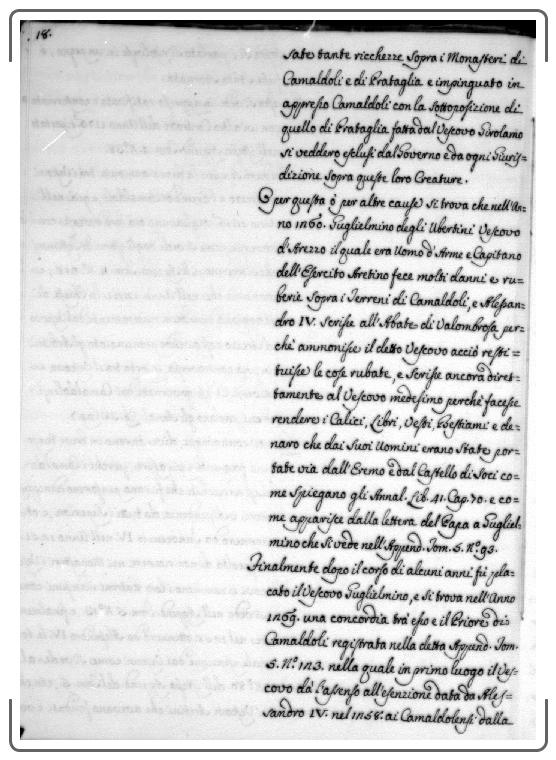 18.
sate tante ricchezze sopra i Monasteri di
Camaldoli e di Prataglia e impinguato in
appresso Camaldoli con la sottoposizione di
quello di Prataglia fatta dal Vescovo Girolamo
si veddero esclusi dal Governo e da ogni Giuris=
dizione sopra queste loro Creature.
O per questa ò per altre cause si trova che nell'An=
no 1260. Guglielmino degli Ubertini Vescovo
d'Arezzo il quale era Uomo d'Arme e Capitano
dell'Esercito Aretino fece molti danni e ru=
berie sopra i Terreni di Camaldoli, e Alessan=
dro IV. scrisse all'Abate di Valombrosa per=
chè ammonisse il detto Vescovo acciò resti=
tuisse le cose rubate, e scrisse ancora diret=
tamente al Vescovo medesimo perchè facesse
rendere i Calici, Libri, Vesti, Bestiami e de=
naro che dai suoi Uomini erano state por=
tate via dall'Eremo e dal Castello di Soci co=
me spiegano gli Annal. Lib. 41. Cap. 70. e co=
me apparisce dalla lettera del Papa a Guglieh
mino che si vede nell'Append. Tom. 5. N.o 93.
Finalmente dopo il corso di alcuni anni fù pla=
cato il Vescovo Guglielmino, e si trova nell'Anno
1269. una concordia trà esso e il Priore di
Camaldoli registrata nella detta Append. Tom.
5. N.o 113. nella quale in primo luogo il Ves=
covo dà l'assenso all'esenzione data da Ales=
sandro IV. nel 1258. ai Camaldolensi dalla